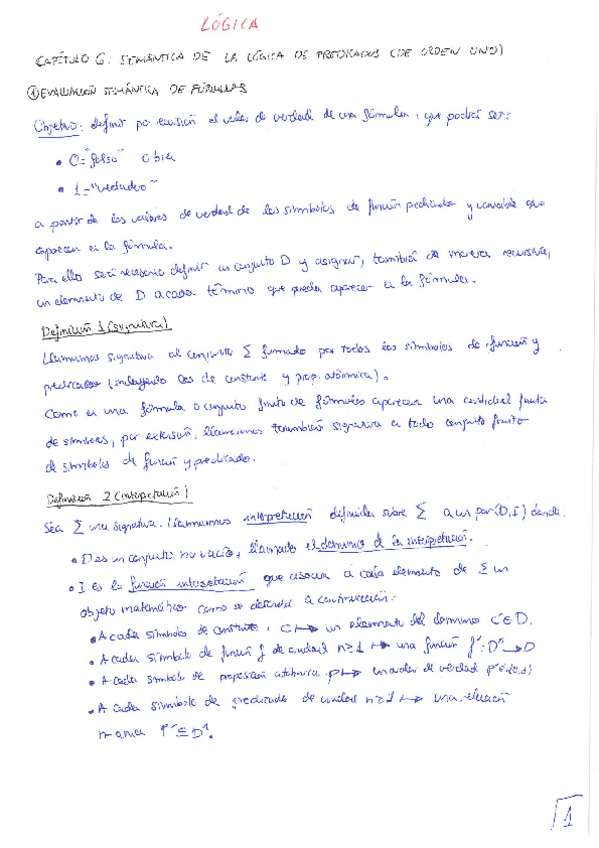 LÓGICA
CAPÍTULO 6: SEMÁNTICA DE LA LÓGICA DE PREDICADOS (DE ORDEN UNO)
① EVALUACIÓN SEMÁNTICA DE FÓRMULAS
Objetivo: definir por recursión el valor de verdad de una fórmula, que podrá ser:
• 0="falso" o bien
• 1="verdadero"
a partir de los valores de verdad de los símbolos de función predicado y variable que
aparecen en la fórmula.
Para ello será necesario definir un conjunto D y asignar, también de manera recursiva,
un elemento de D a cada término que pueda aparecer en la fórmula.
Definición 1 (signatura)
Llamamos signatura al conjunto Σ formado por todos los símbolos de función y
predicado (incluyendo los de constante y prop. atómica).
Como en una fórmula o conjunto finito de fórmulas aparece una cantidad finita
de símbolos, por extensión, llamamos también signatura a todo conjunto finito
de símbolos de función y predicado.
Definición 2 (interpretación)
Sea Σ una signatura. Llamamos interpretación definida sobre Σ a un par (D,I) donde:
• D es un conjunto no vacío, llamado el dominio de la interpretación.
• I es la función interpretación que asocia a cada elemento de Σ un
objeto matemático como se describe a continuación:
• A cada símbolo de constante, c ↦ un elemento del dominio c' ∈ D.
• A cada símbolo de función f de aridad n≥1 ↦ una función f': Dⁿ → D
• A cada símbolo de proposición atómica p ↦ un valor de verdad p' ∈ {0,1}
• A cada símbolo de predicado de aridad n≥1 ↦ una relación
n-aria P' ⊆ Dⁿ.
1